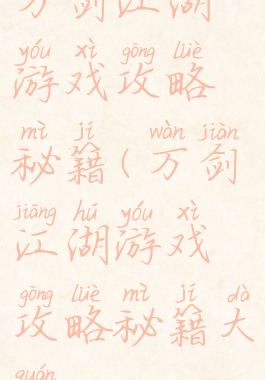 万剑江湖
yóu xì gōng lüè
游戏攻略
mì jí wàn jiàn
秘籍(万剑
jiāng hú yóu xì
江湖游戏
gōng lüè mì jí dà
攻略秘籍大
quán